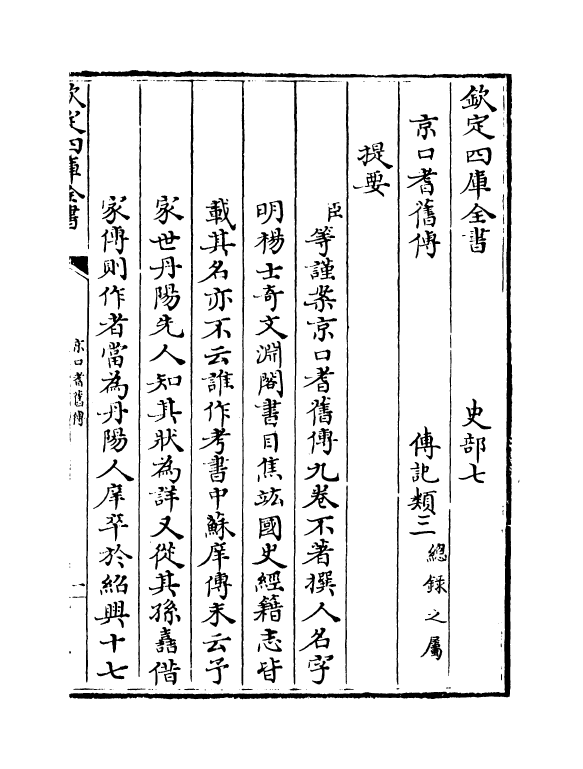 欽定四庫全書　　　史部七
京口耆舊傳　　　傳記類三總錄之屬
提要
臣等謹案京口耆舊傳九卷不著撰人名字
明楊士奇文淵閣書目焦竑國史經籍志皆
載其名亦不云誰作考書中蘇庠傳末云予
家世丹陽先人知其狀為詳又從其孫嚞借
家傳則作者當為丹陽人庠卒於紹興十七
欽定四庫全書
京口耆舊傳
一